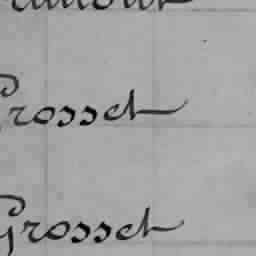 Grosset
Grosset